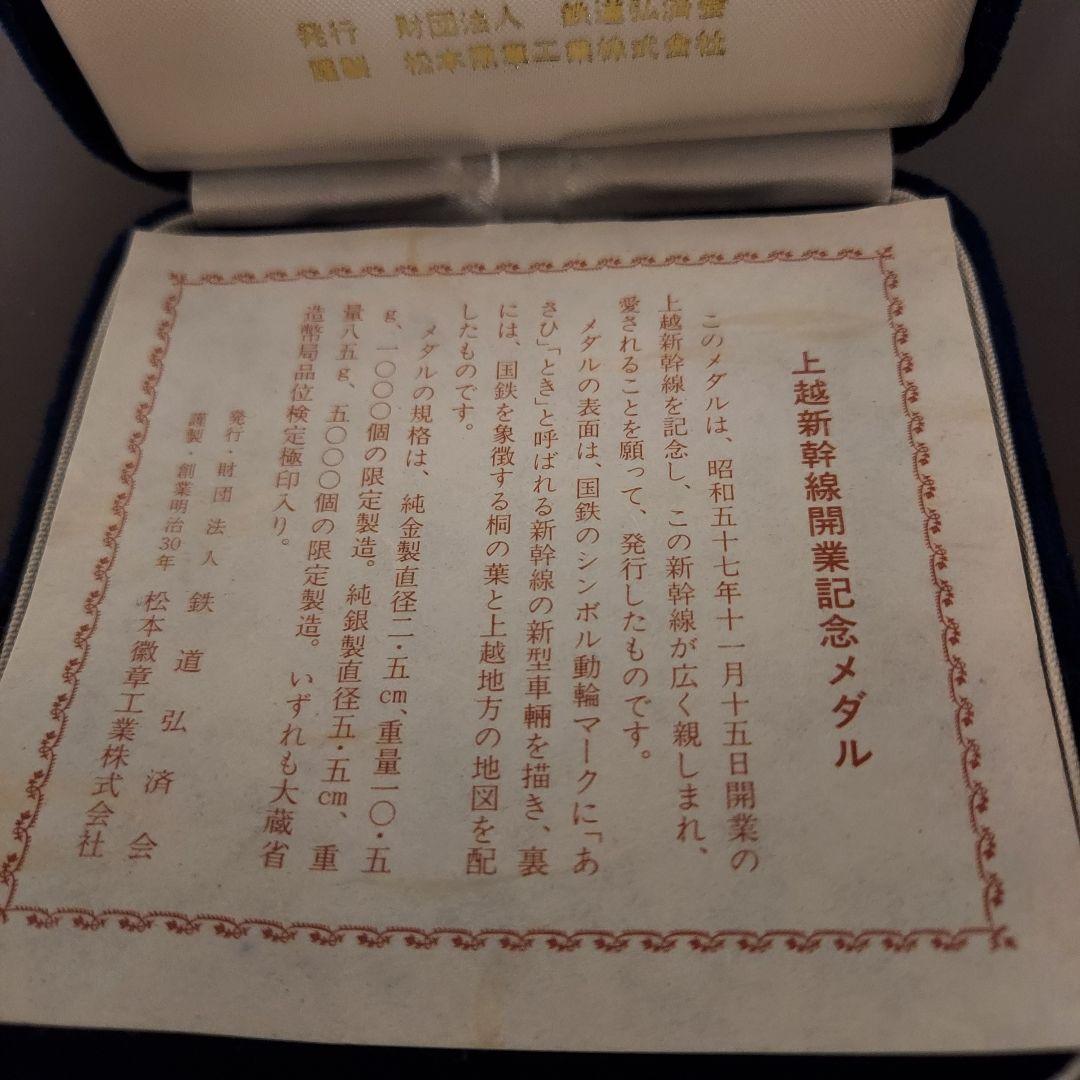 発行 財団法人 鉄道弘済会
謹製 松本徽章工業株式会社
上越新幹線開業記念メダル
このメダルは、昭和五十七年十一月十五日開業の
上越新幹線を記念し、この新幹線が広く親しまれ、
愛されることを願って、発行したものです。
メダルの表面は、国鉄のシンボル動輪マークに「あ
さひ」「とき」と呼ばれる新幹線の新型車輛を描き、裏
には、国鉄を象徴する桐の葉と上越地方の地図を配
したものです。
メダルの規格は、純金製直径二・五cm、重量一〇・五
g、一〇〇〇個の限定製造。純銀製直径五・五cm、重
量八五g、五〇〇〇個の限定製造。いずれも大蔵省
造幣局品位検定極印入り。
発行・財団法人 鉄道弘済会
謹製・創業明治30年 松本徽章工業株式会社